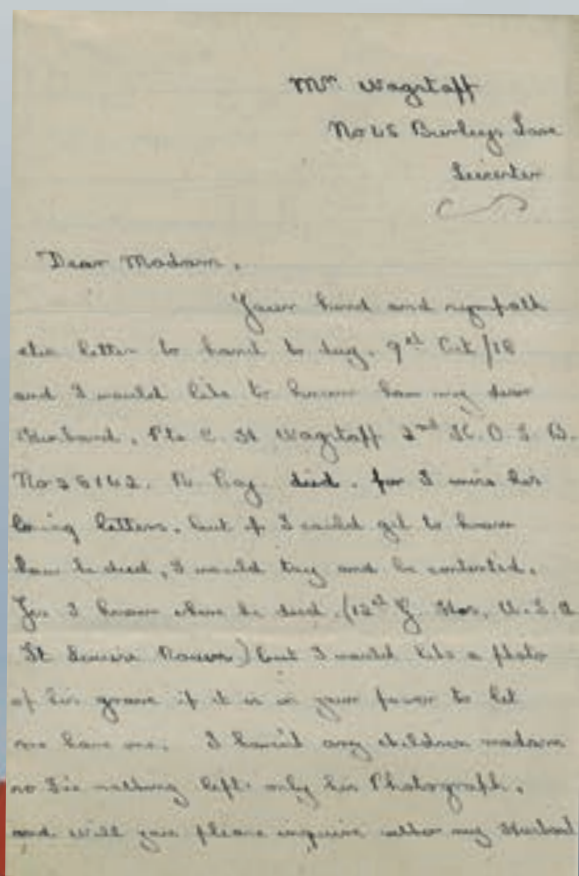 Mrs Wagstaff
No 45 Burleys Lane
Leicester
Dear Madam,
Your kind and sympath
etic letter to hand to day. 9th Oct/18
and I would like to know how my dear
Husband, Pte C. H Wagstaff 2nd K.O.S.B.
No 25142. B. Coy. died. for I miss his
loving letters, but if I could get to know
how he died, I would try and be contented.
for I know where he died. (12th G. Hos. U.S.A
St Rouen) but I would like a photo
of his grave if it is in your favor to let
me have one. I havin't any children madam
so I've nothing left only his Photograph.
and will you please inquire wether my Husband